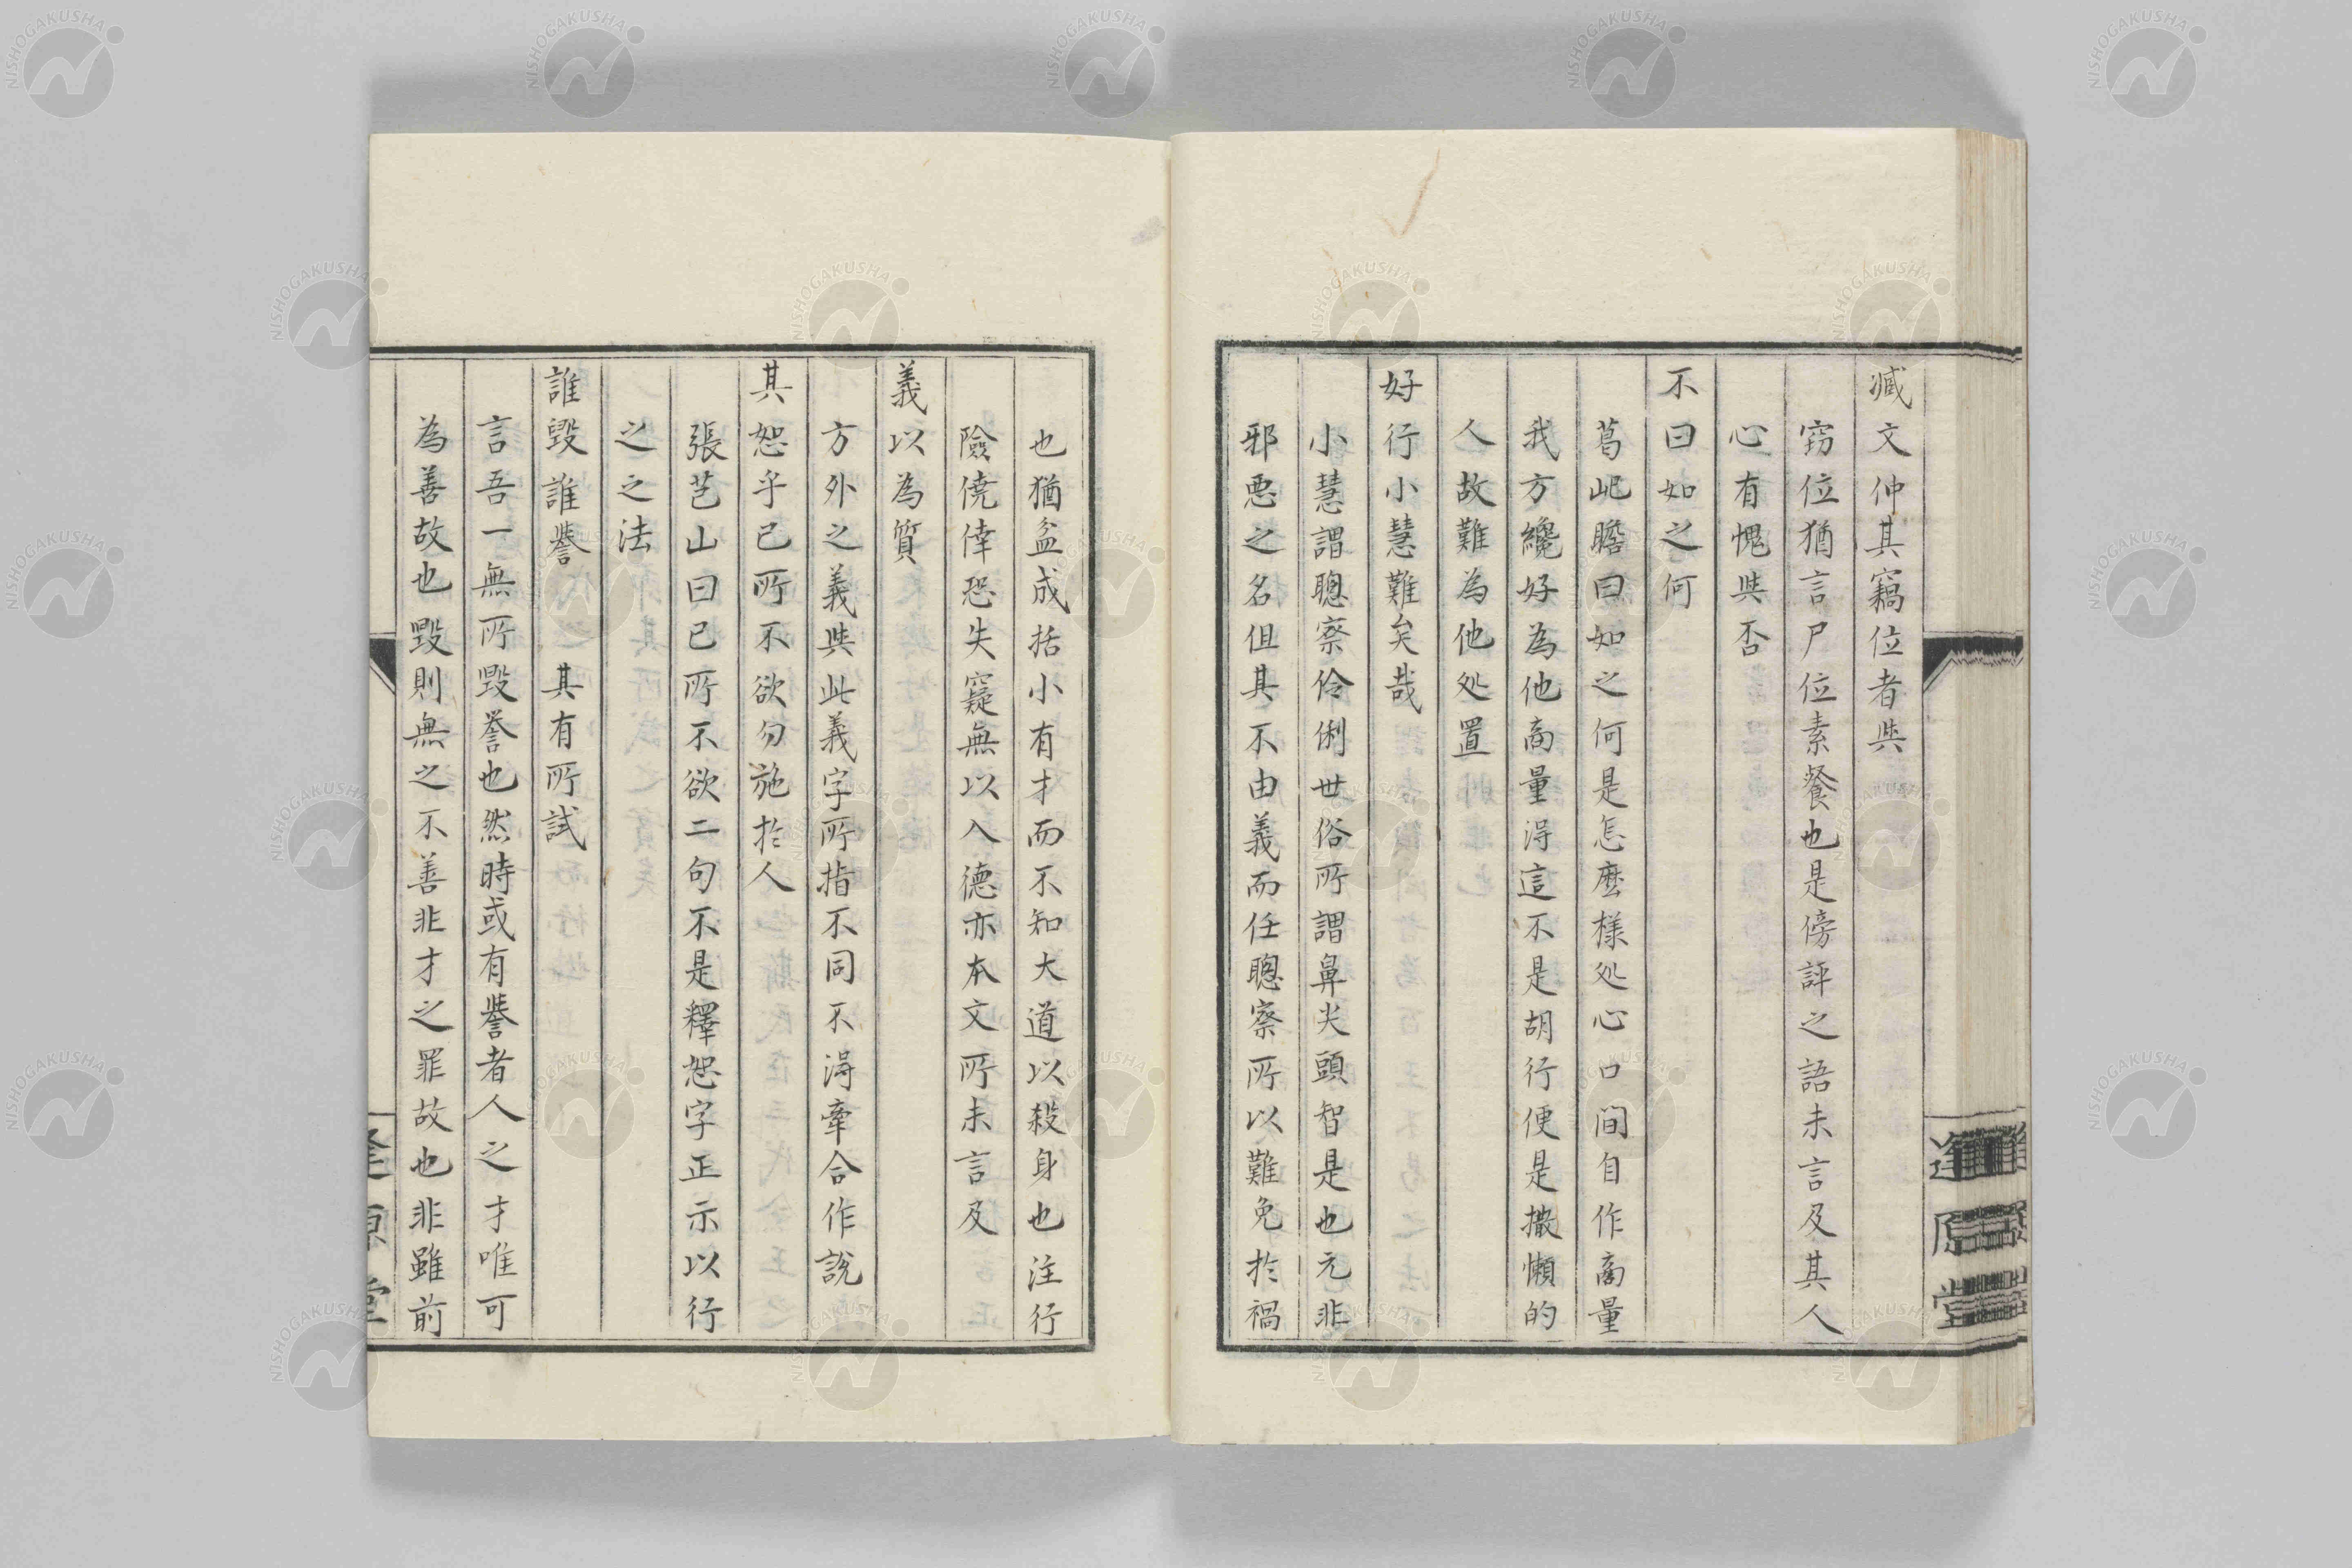 臧文仲其竊位者與
窃位猶言尸位素餐也是傍評之語未言及其人
心有愧與否
不曰如之何
葛屺瞻曰如之何是怎麽樣処心口間自作商量
我方纔好為他商量淂這不是胡行便是撒懶的
人故難為他処置
好行小慧難矣哉
小慧謂聰察伶俐世俗所謂鼻尖頭智是也元非
邪悪之名但其不由義而任聰察所以難免於禍
也猶盆成括小有才而不知大道以殺身也注行
險僥倖恐失窺無以入德亦本文所未言及
義以為質
方外之義與此義字所指不同不淂牽合作說
其恕乎己所不欲勿施於人
張芑山曰己所不欲二句不是釋恕字正示以行
之之法
誰毀誰譽 其有所試
言吾一無所毀誉也然時或有譽者人之才唯可
為善故也毀則無之不善非才之罪故也非雖前
逢原堂